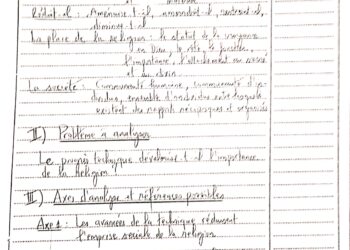 Réduit-il : Amenuise-t-il, amoindrit-il, restreint-il,
diminue-t-il
La place de la religion : le statut de la croyance
en Dieu, le rôle, la fonction,
l'importance, l'attachement au sacré
et au divin
La société : Communauté humaine, communauté d'in-
dividus, ensemble d'individus entre lesquels
existent des rapports réciproques et organisés
II) Problème à analyser
Le progrès technique dévalorise-t-il l'importance
de la religion
III) Axes d'analyse et références possibles
Axe 1 : Les avancées de la technique réduisent
l'emprise sociale de la religion